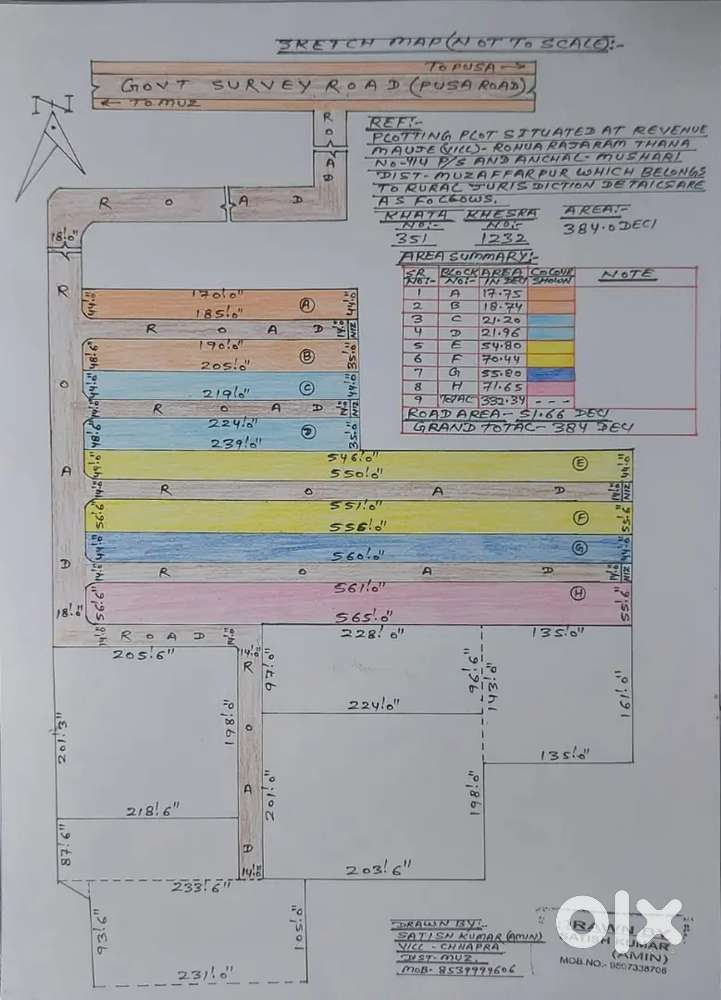 SKETCH MAP (NOT TO SCALE):-
TO PUSA →
GOVT SURVEY ROAD (PUSA ROAD)
← TO MUZ
N
ROAD
ROAD
18'.0"
REF:-
PLOTTING PLOT SITUATED AT REVENUE
MAUJE (VILL)- ROHUA RAJARAM THANA
NO-414 P/S AND ANCHAL- MUSHARI
DIST- MUZAFFARPUR WHICH BELONGS
TO RURAL JURISDICTION DETAILS ARE
AS FOLLOWS.
KHATA KHESRA AREA:-
NO:- NO:- 384.0 DECI
351 1232
AREA SUMMARY:-
SR BLOCK AREA COLOUR NOTE
NO:- NO:- IN DECI SHOWN
1 A 17.75
2 B 18.74
3 C 21.20
4 D 21.96
5 E 54.80
6 F 70.44
7 G 55.80
8 H 71.65
9 TOTAL 332.34 - - -
ROAD AREA- 51.66 DECI
GRAND TOTAL- 384 DECI
ROAD
44'.0" 170'.0" A 44'.0"
185'.0"
ROAD 14'.0 N12
48'.6" 190'.0" B 35'.0"
205'.0"
44'.0 219'.0" C 44'.0
14'.0 ROAD 14'.0 N12
48'.6" 224'.0" D 35'.0"
239'.0"
44'.0" 546'.0" E 44'.0"
550'.0"
14'.0 ROAD 14'.0 N12
56'.6" 551'.0" F 55'.6"
556'.0"
44'.0" 560'.0" G 44'.0
14'.0 ROAD 14'.0 N12
56'.6" 561'.0" H 55'.6"
18'.0" 565'.0"
14'.0 ROAD 14'.0
205'.6" 14'.0" 228'.0" 135'.0"
97'.0" 96'.6" 143'.0" 161'.0"
201'.3" 198'.0" ROAD 224'.0"
135'.0"
218'.6" 201'.0" 198'.0"
87'.6" 14'.0" 203'.6"
233'.6"
93'.6" 105'.0"
231'.0"
DRAWN BY:-
SATISH KUMAR (AMIN)
VILL - CHHAPRA
DIST- MUZ.
MOB- 8539999606
DRAWN BY
SATISH KUMAR
(AMIN)
olx